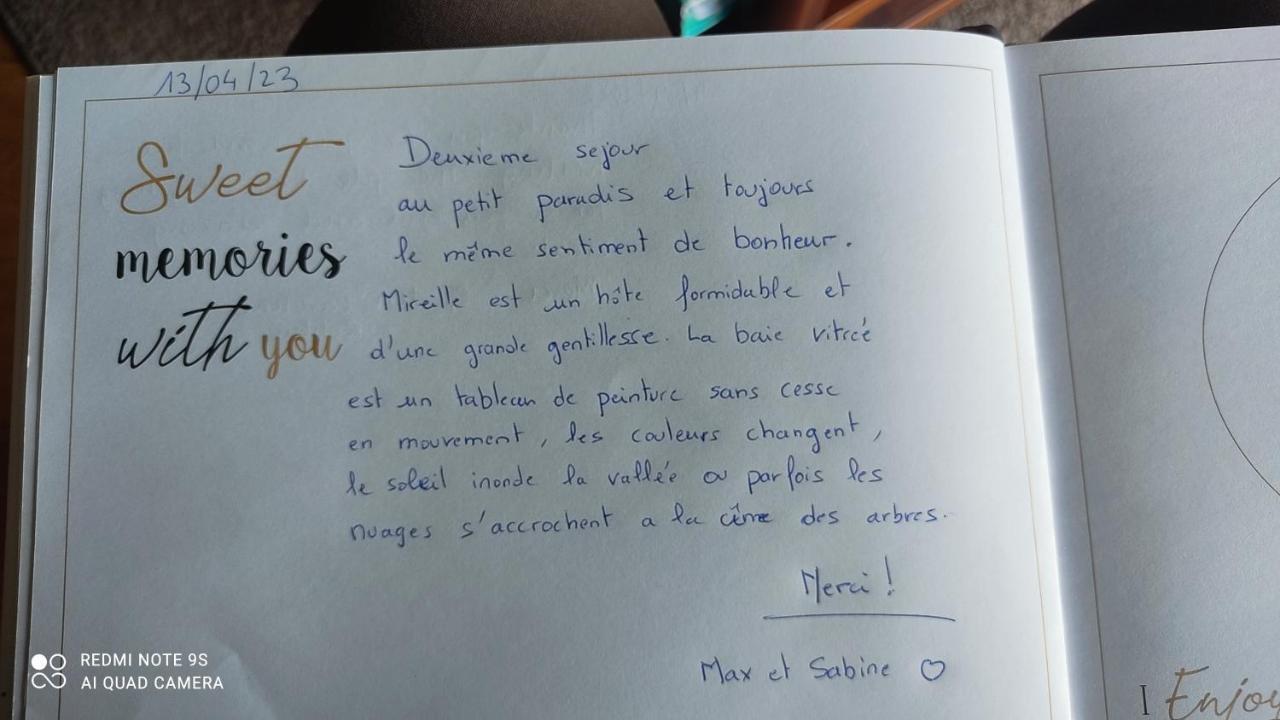 13/04/23
Sweet
memories
with you
Deuxieme sejour
au petit paradis et toujours
le même sentiment de bonheur.
Mireille est un hôte formidable et
d'une grande gentillesse. La baie vitrée
est un tableau de peinture sans cesse
en mouvement, les couleurs changent,
le soleil inonde la vallée ou parfois les
nuages s'accrochent a la cîme des arbres.
Merci !
Max et Sabine ♡
I Enjoy
REDMI NOTE 9S
AI QUAD CAMERA